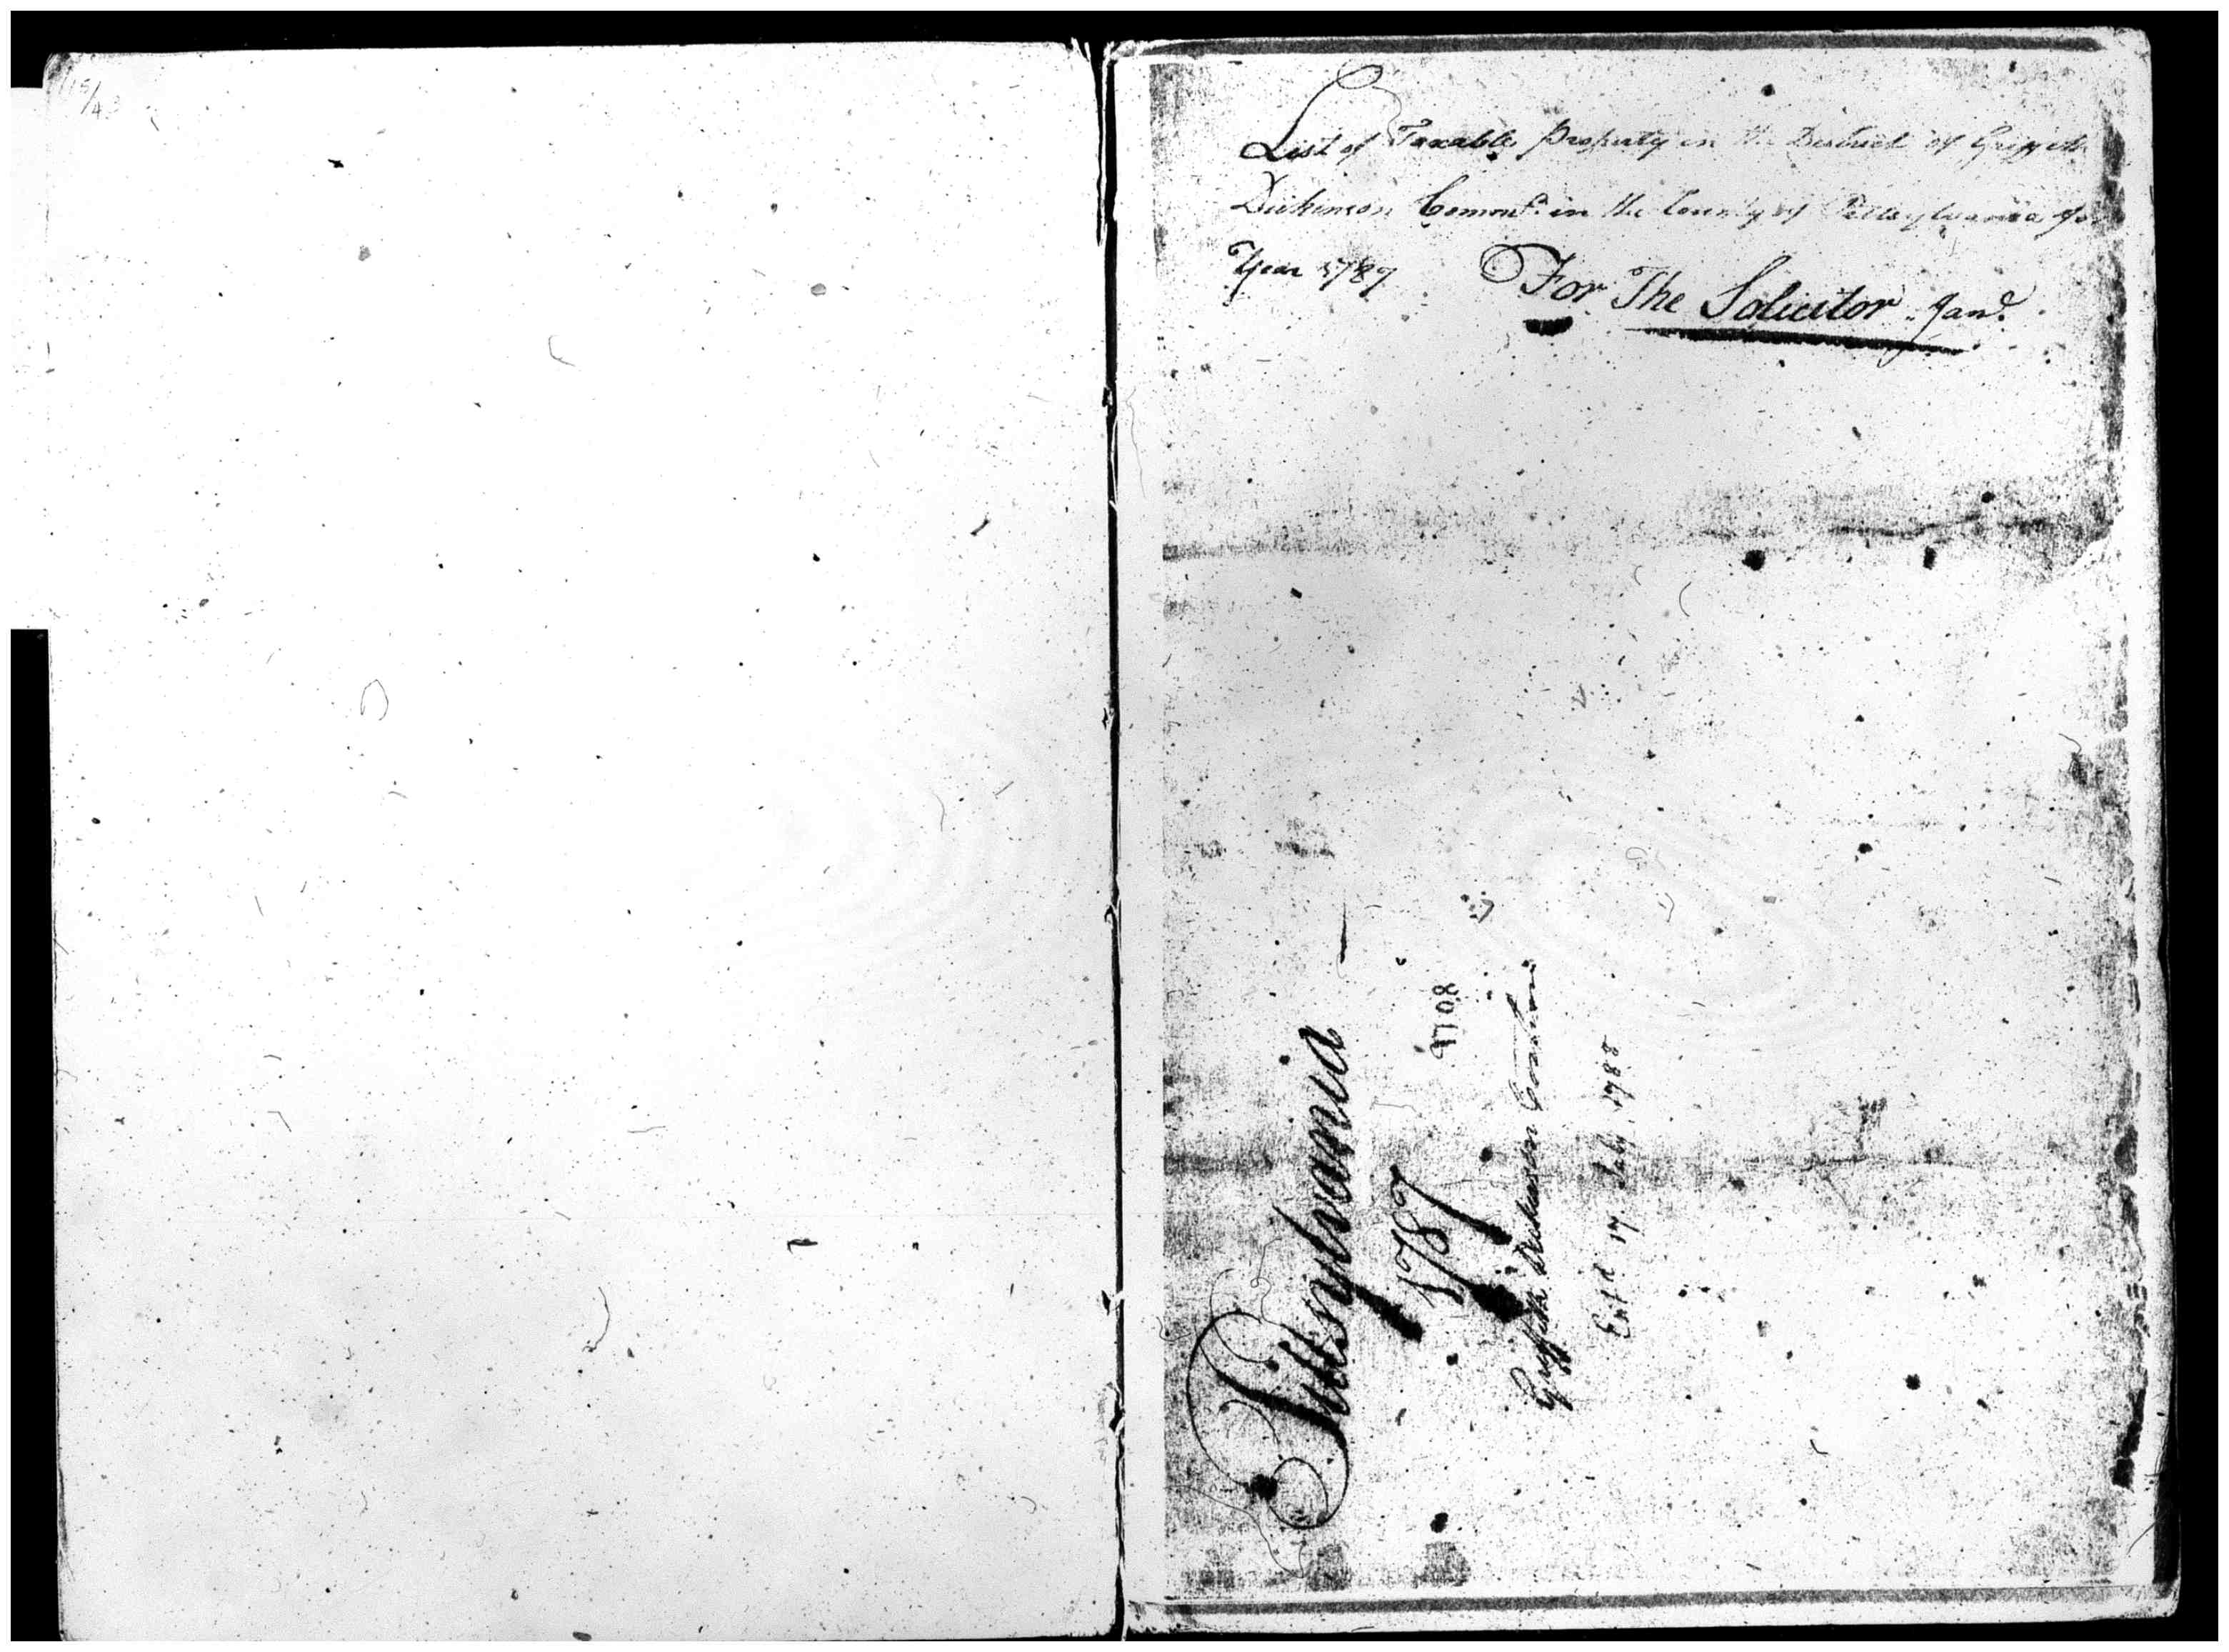 List of Taxable Property in the District of Griffith
Dickinson Comonr. in the County of Pittsylvania for
Year 1787
For The Solicitor
Pittsylvania
1787
9708
Griffith Dickinson
Ext'd 17 July 1788